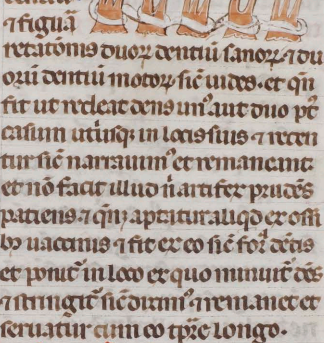 ⁊ figuꝛa
retatōnis duoꝝ dentiū sanoꝝ· ⁊ du
oꝛū dentiū motoꝝ· sic̄ uides· et qn̄
fit ut redeat dens un᷒· aut duo pꝰ
casum utriusqꝫ in locis suis ⁊ recen
tur sic̄ narrauim᷒ et remaneant·
et nō facit illud n̄ artifex prudēs
patiens ⁊ qn̄qꝫ aptatur aliqd ex ossi
bꝫ uaccinis ⁊ fit ex eo sic̄ foꝛ̄ dētis
et ponit᷑ in loco ex quo minuit᷑ dēs
⁊ stringit᷑ sic̄ diximꝰ ⁊ remanet et
seruatur cum eo tp̄re longo·